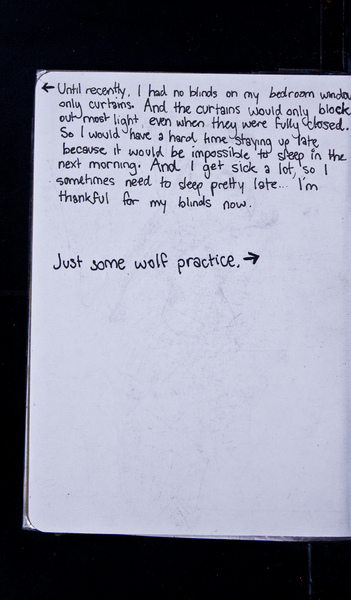 ← Until recently, I had no blinds on my bedroom window
only curtains. And the curtains would only block
out most light, even when they were fully closed.
So I would have a hard time staying up late
because it would be impossible to sleep in the
next morning. And I get sick a lot, so I
sometimes need to sleep pretty late... I'm
thankful for my blinds now.
Just some wolf practice. →